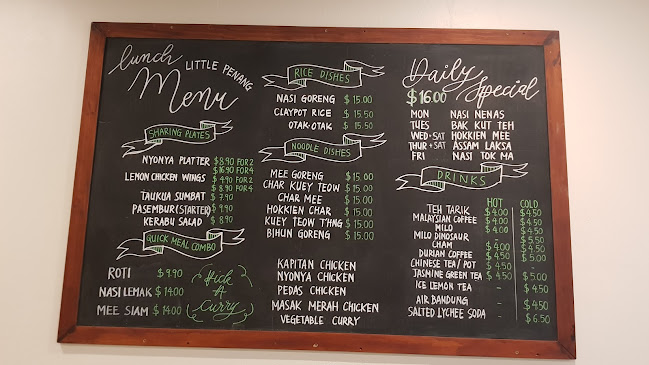 lunch
LITTLE PENANG
Menu
SHARING PLATES
NYONYA PLATTER $8.90 FOR 2
$16.90 FOR 4
LEMON CHICKEN WINGS $4.90 FOR 2
$8.90 FOR 4
TAUKUA SUMBAT $7.90
PASEMBUR (STARTER) $9.90
KERABU SALAD $8.90
QUICK MEAL COMBO
ROTI $9.90
NASI LEMAK $14.00
MEE SIAM $14.00
Pick
A
Curry
RICE DISHES
NASI GORENG $15.00
CLAYPOT RICE $15.50
OTAK-OTAK $15.50
NOODLE DISHES
MEE GORENG $15.00
CHAR KUEY TEOW $15.00
CHAR MEE $15.00
HOKKIEN CHAR $15.00
KUEY TEOW TH'NG $15.00
BIHUN GORENG $15.00
KAPITAN CHICKEN
NYONYA CHICKEN
PEDAS CHICKEN
MASAK MERAH CHICKEN
VEGETABLE CURRY
Daily
Special
$16.00
MON NASI NENAS
TUES BAK KUT TEH
WED+SAT HOKKIEN MEE
THUR+SAT ASSAM LAKSA
FRI NASI TOK MA
DRINKS
HOT COLD
TEH TARIK $4.00 $4.50
MALAYSIAN COFFEE $4.00 $4.50
MILO $4.00 $4.50
MILO DINOSAUR $5.50
CHAM $4.00 $4.50
DURIAN COFFEE $4.50 $5.50
CHINESE TEA / POT $4.50 -
JASMINE GREEN TEA $4.50 $5.00
ICE LEMON TEA - $4.50
AIR BANDUNG - $4.50
SALTED LYCHEE SODA - $6.50